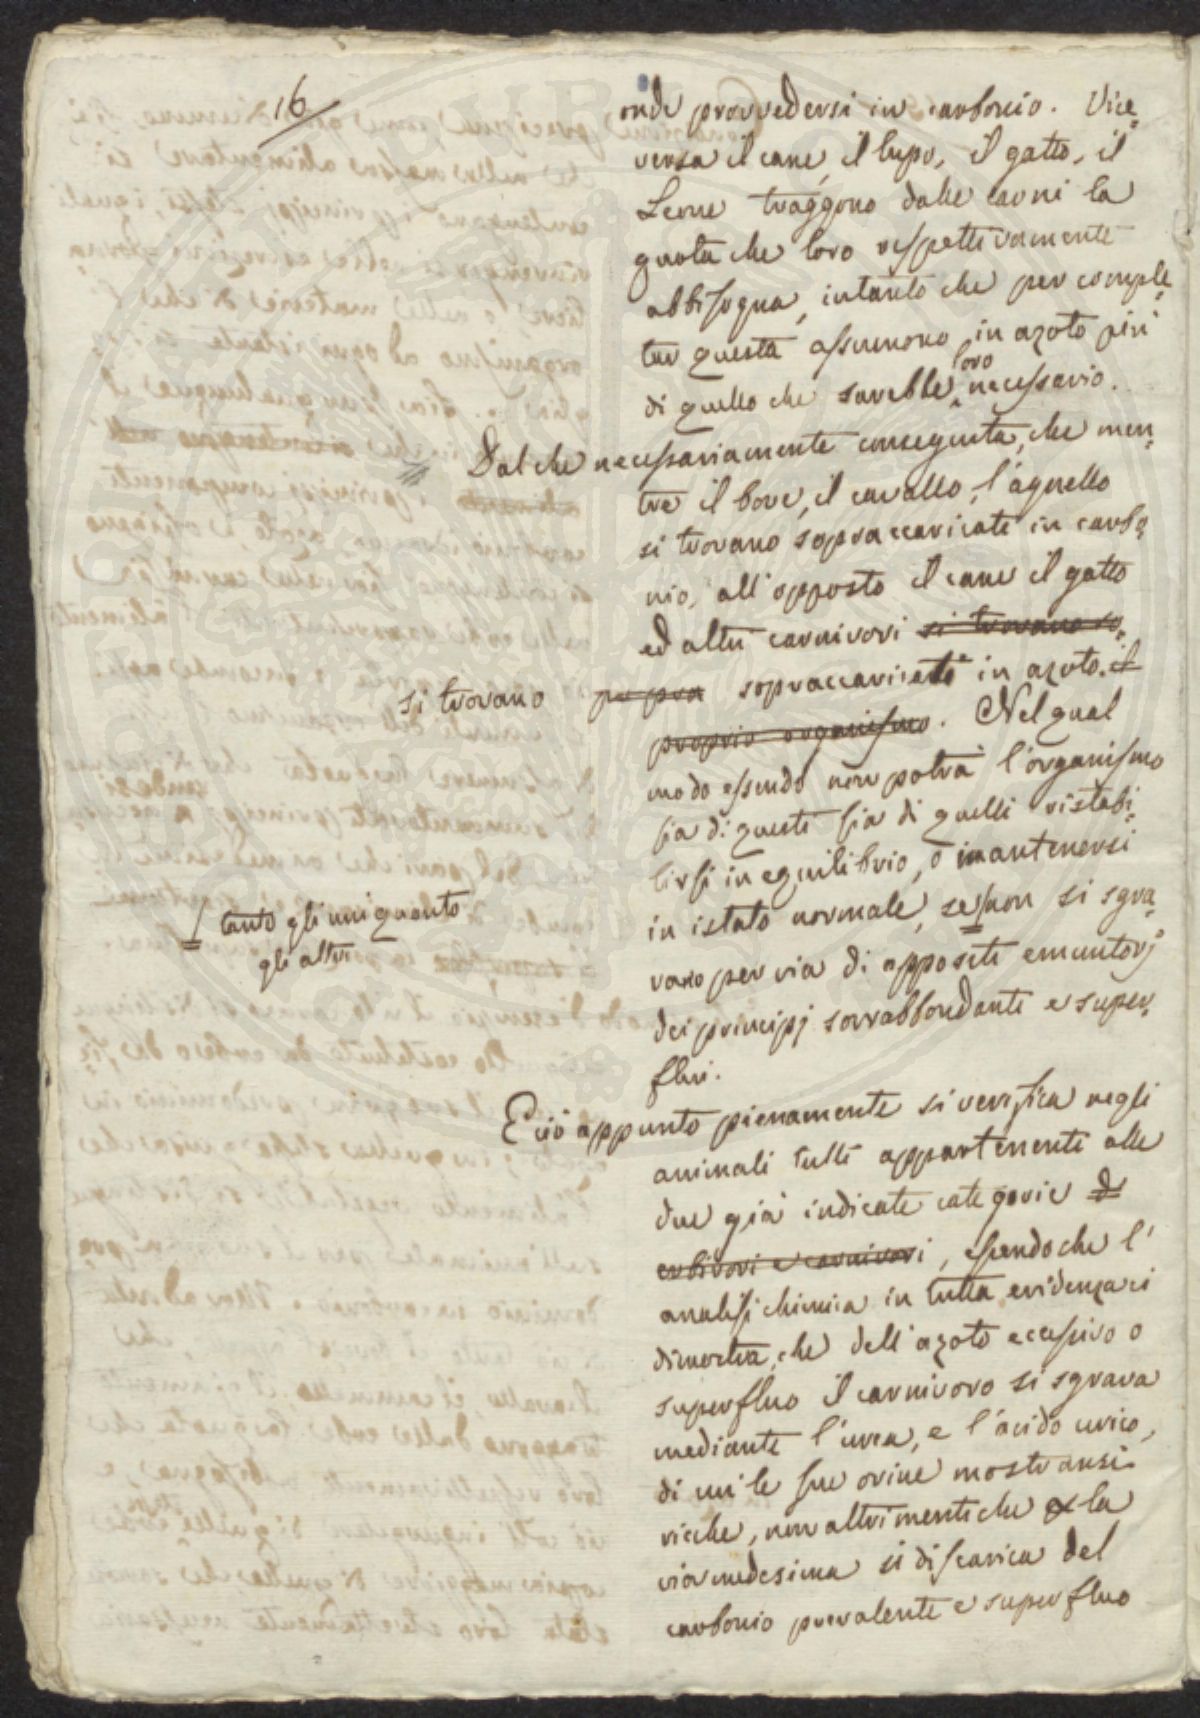 16
onde provvedersi in carbonio. Vice-
versa il cane, il lupo, il gatto, il
Leone traggono dalle carni la
quota che loro respettivamente
abbisogna, intanto che per comple-
tar questa assumono in azoto più
di quello che sarebbe loro necessario.
Dal che necessariamente conseguita, che men-
tre il bove, il cavallo, l'agnello
si trovano sopraccaricati in carbo-
nio, all'opposto il cane il gatto
ed altri carnivori si trovano so-
si trovano pra sopraccaricati in azoto. il
proprio organismo. Nel qual
modo essendo non potrà l'organismo
sia di questi sia di quelli ristabi-
lirsi in equilibrio, o mantenersi
in istato normale, se non si sgra-
tanto gli uni quanto
gli altri
vano per via di appositi emuntorj
dei principj sovrabbondanti e super-
flui.
E ciò appunto pienamente si verifica negli
animali tutti appartenenti alle
due già indicate categorie d
erbivori e carnivori, essendo che l'
analisi chimica in tutta evidenza ci
dimostra, che dell'azoto eccessivo o
superfluo il carnivoro si sgrava
mediante l'urea, e l'acido urico,
di cui le sue orine mostransi
ricche, non altrimenti che la
via medesima si discarica del
carbonio prevalente e superfluo